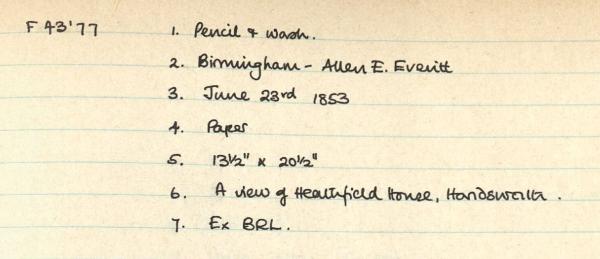 F 43'77 1. Pencil & wash.
2. Birmingham - Allen E. Everitt
3. June 23rd 1853
4. Paper
5. 13½" x 20½"
6. A view of Heathfield House, Handsworth.
7. Ex BRL.